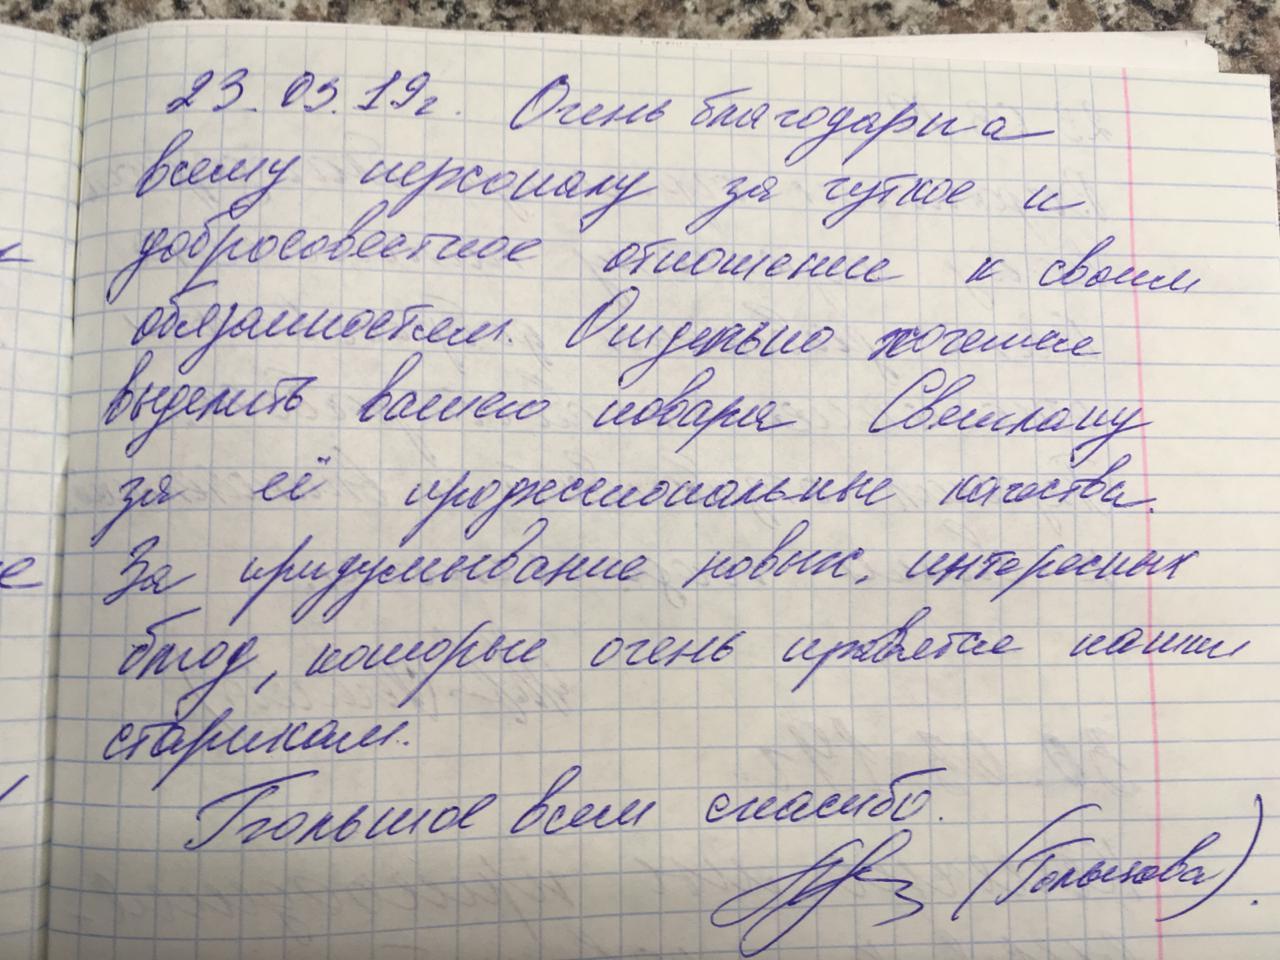 23.03.19г. Очень благодарна
всему персоналу за чуткое и
добросовестное отношение к своим
обязанностям. Отдельно хочется
выделить вашего повара Светлану
за её профессиональные качества.
За придумывание новых, интересных
блюд, которые очень нравятся нашим
старикам.
Большое всем спасибо.